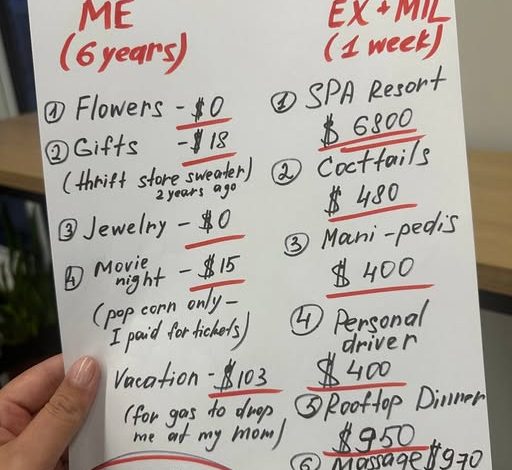 ME
(6 years)
① Flowers - $0
② Gifts - $18
(thrift store sweater)
2 years ago
③ Jewelry - $0
④ Movie
night - $15
(pop corn only -
I paid for tickets)
Vacation - $103
(for gas to drop
me at my mom)
EX + MIL
(1 week)
① SPA Resort
$ 6800
② Cocttails
$ 480
③ Mani-pedis
$ 400
④ Personal
driver
$ 400
⑤ Rooftop Dinner
$950
⑥ Massage $970